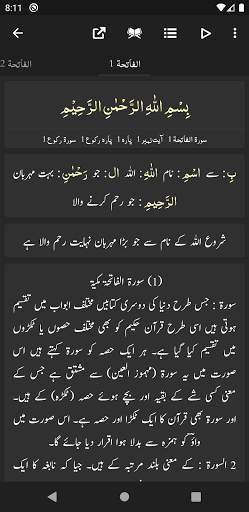 8:11
الفاتحة 2
الفاتحة 1
بِسْمِ اللّٰهِ الرَّحْمٰنِ الرَّحِیْمِ
سورۃ الفاتحۃ 1 آیت نمبر 1 پارہ 1 پارہ رکوع 1 سورۃ رکوع 1
بِ: سے اسْمِ: نام اللّٰهِ: اللہ ال: جو رَحْمٰنِ: بہت مہربان
الرَّحِیْمِ: جو رحم کرنے والا
شروع اللہ کے نام سے جو بڑا مہربان نہایت رحم والا ہے
(1) سورۃ الفاتحۃ مکیۃ
سورۃ : جس طرح دنیا کی دوسری کتابیں مختلف ابواب میں تقسیم
ہوتی ہیں اسی طرح قرآن حکیم کو بھی مختلف حصوں یا ٹکڑوں
میں تقسیم کیا گیا ہے۔ ہر ایک حصہ کو سورۃ کہتے ہیں اس
صورت میں یہ سورۃ (مہموز العین) سے مشتق ہے جس کے
معنی کسی شے کے بقیہ اور بچے ہوئے حصہ (ٹکڑہ) کے ہیں۔
اور سورۃ بھی قرآن کا ایک حصہ یا ٹکڑہ ہے۔ اس صورت میں
واؤ کو ہمزہ سے بدلا ہوا اقرار دیا جائے گا۔
2 السورۃ : کے معنی بلند مرتبہ کے ہیں۔ جیا کہ نابغہ کا ایک